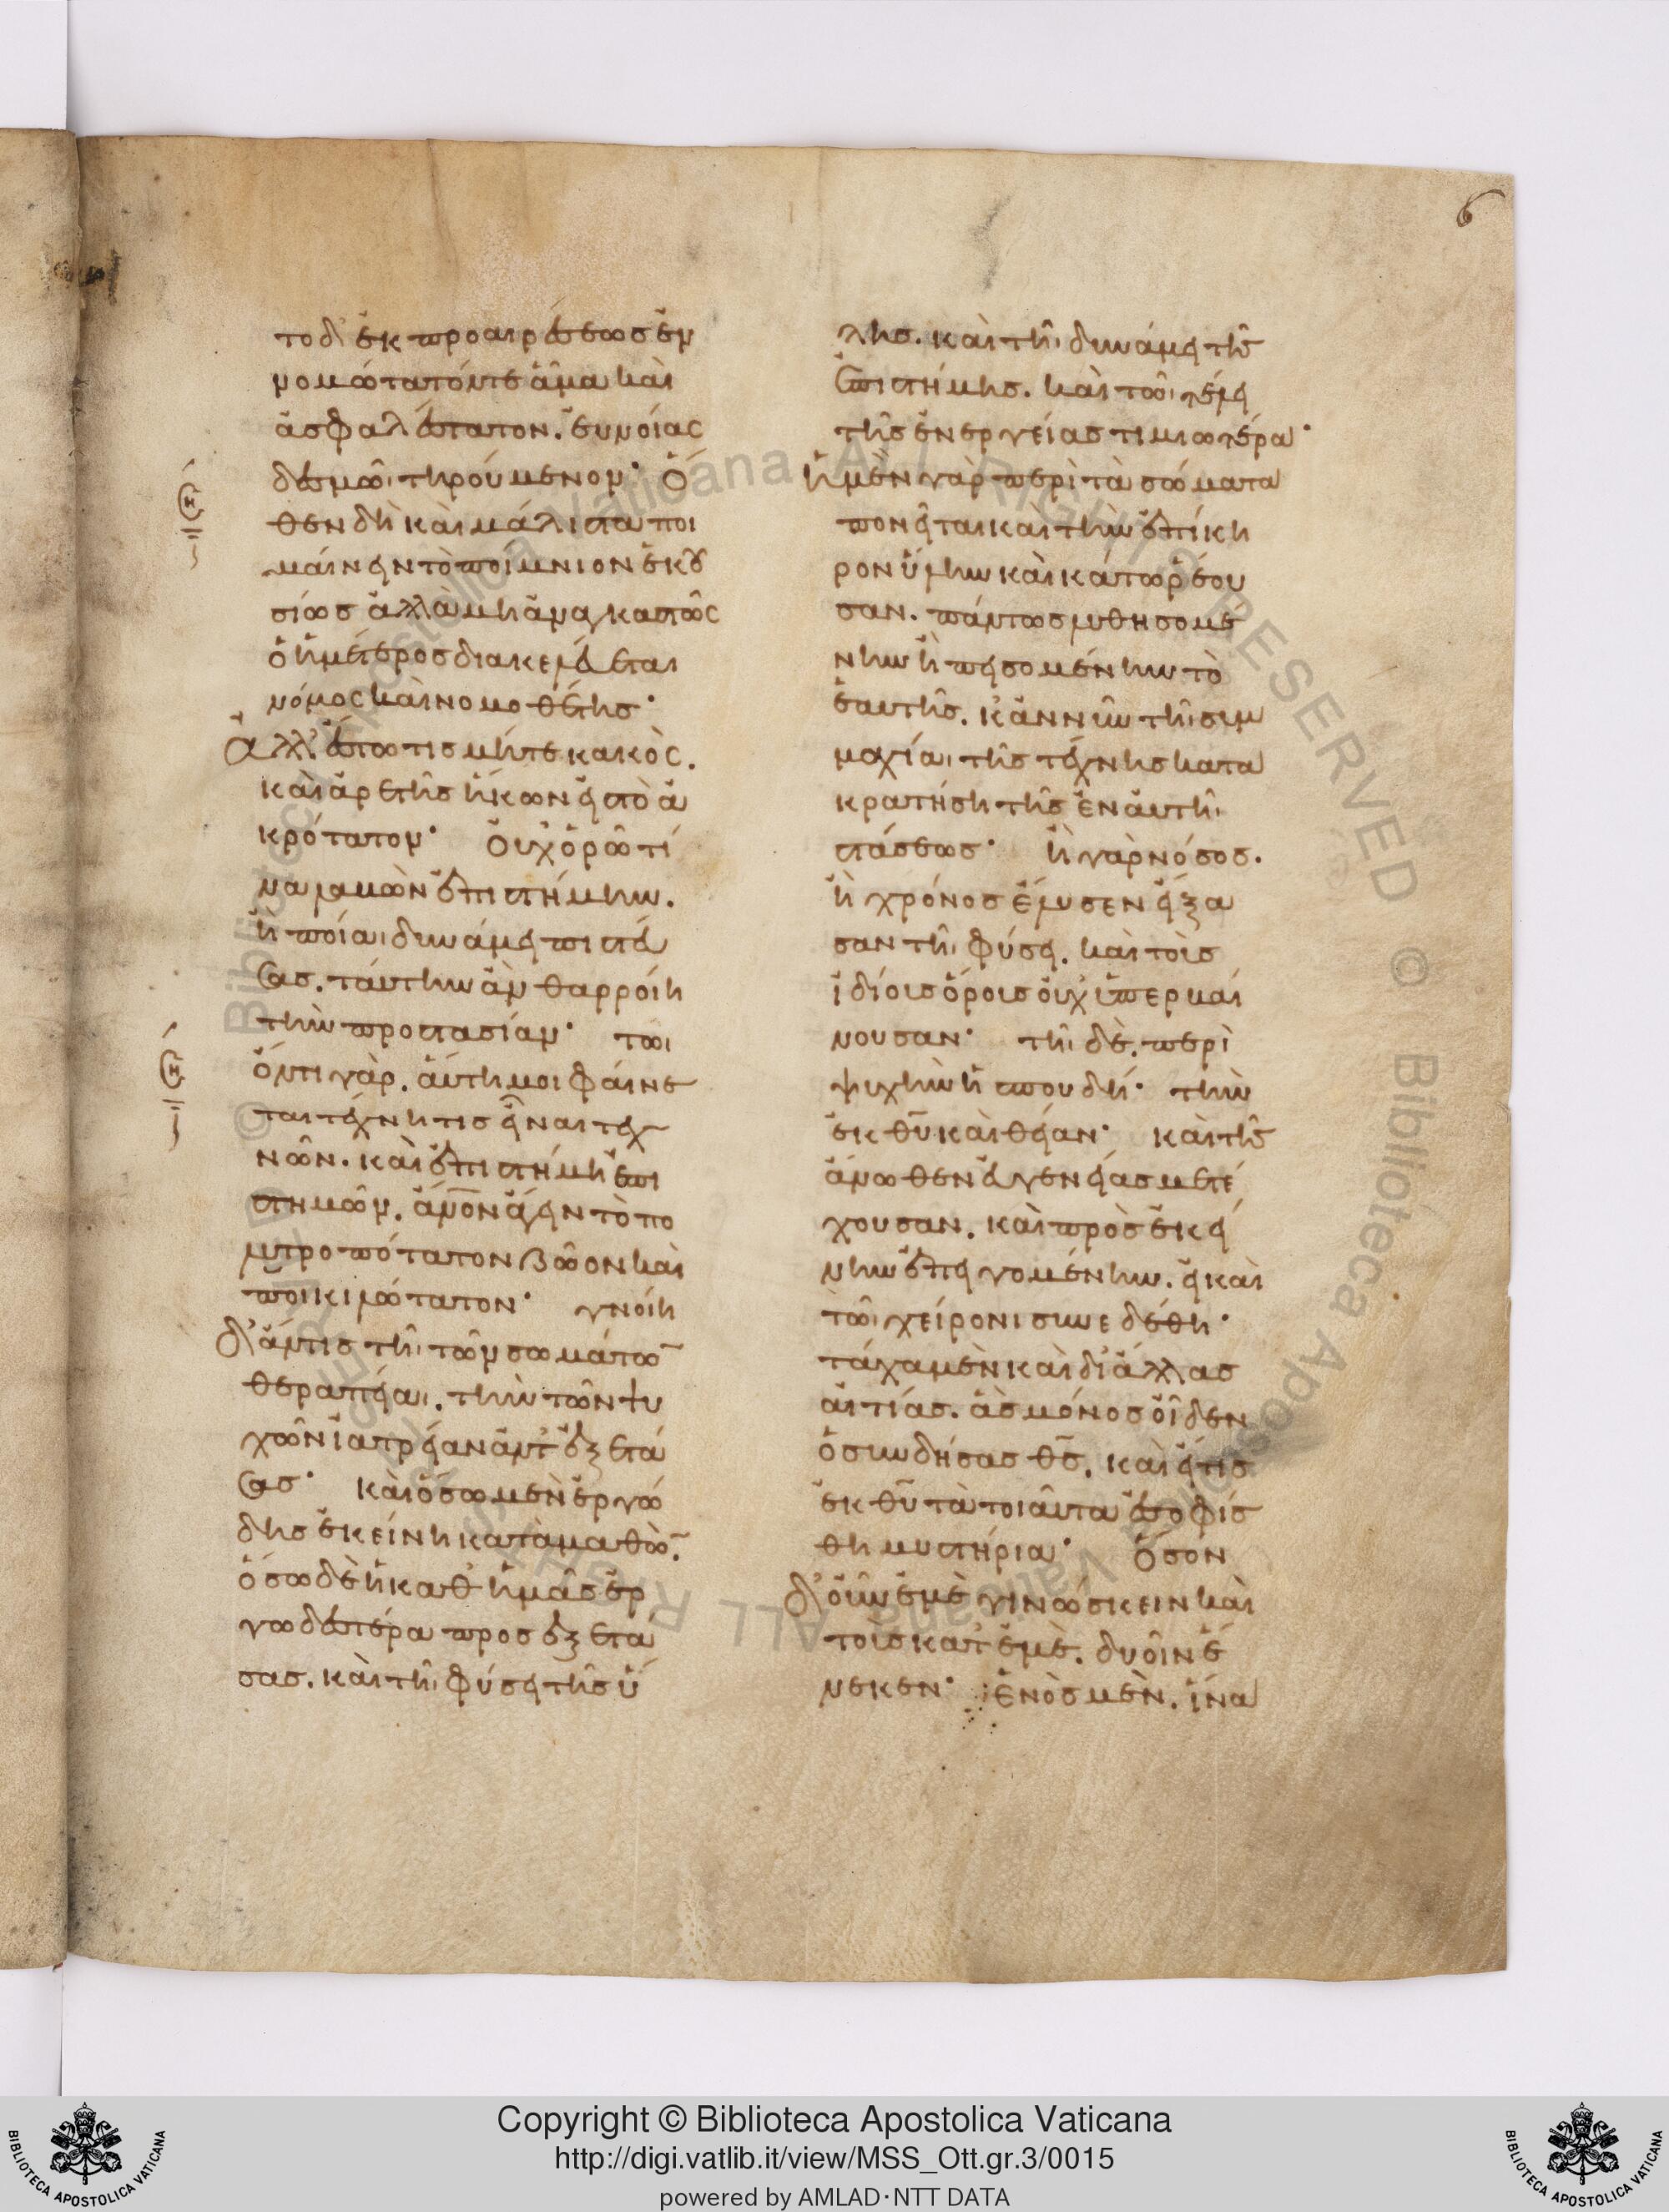 6
το δ' ἐκ προαιρέσεως ἐν
νομώτατόν τε ἅμα καὶ
ἀσφαλέστατον. εὐνοίας
δεσμῶι τηρούμενον· ὅ
θεν δὴ καὶ μάλιστα ποι
μαίνειν τὸ ποίμνιον ἑκου
σίως ἀλλὰ μὴ ἀναγκαστῶς
ὁ ἡμέτερος διακελεύεται
νόμος καὶ νομοθέτης·
ἀλλ' ἔστω τις μήτε κακὸς.
καὶ ἀρετῆς ἥκων εἰς τὸ ἀ
κρότατον· οὐχ' ὁρῶ τί
να λαβὼν ἐπιστήμην.
ἢ ποίαι δυνάμει πιστεύ
σας. ταύτην ἂν θαρροίη
τὴν προστασίαν· τῶι
ὄντι γὰρ. αὕτη μοι φαίνε
ται τέχνη τις εἶναι τεχ
νῶν. καὶ ἐπιστήμη ἐπι
στημῶν. ἄν̅ο̅ν ἄγειν τὸ πο
λυτροπώτατον ζῶον καὶ
ποικιλώτατον· γνοίη
δ' ἄν τις τῆι τῶν σωμάτω̅
θεραπείαι. τὴν τῶν ψυ
χῶν ἰατρείαν ἀντ' ἐξετά
σας· καὶ ὅσω μὲν ἐργώ
δης ἐκείνη καταμαθὼ̅.
ὅσω δὲ ἡ καθ' ἡμᾶς ἐρ
γωδεστέρα προσεξετά
σας. καὶ τῆι φύσει τῆς ὕ
λης. καὶ τῆι δυνάμει τῆς
ἐπιστήμης. καὶ τῶι τέλει
τῆς ἐνεργείας τιμιωτέρα·
ἡ μὲν γὰρ περὶ τὰ σώματα
πονεῖται καὶ τὴν ἐπίκη
ρον ὕλην καὶ κάτω ῥέου
σαν. πάντως λυθησομέ
νην ἢ πεισομένην τὸ
ἑαυτῆς. κἂν νῦν τῆι συμ
μαχίαι τῆς τέχνης κατα
κρατήσηι τῆς ἐν αὐτῆι
στάσεως· ἢ γὰρ νόσος.
ἢ χρόνος ἔλυσεν εἴξα
σαν τῆι φύσει. καὶ τοῖς
ἰδίοις ὅροις οὐχ' ὑπερβαί
νουσαν· τῆι δὲ. περὶ
ψυχὴν ἡ σπουδή· τὴν
ἐκ θ̅υ̅ καὶ θείαν· καὶ τῆς
ἄνωθεν εὐγενείας μετέ
χουσαν. καὶ πρὸς ἐκεί
νην ἐπειγομένην. εἰ καὶ
τῶι χείρονι συνεδέθη·
τάχα μὲν καὶ δι' ἄλλας
αἰτίας. ἃς μόνος οἶδεν
ὁ συνδήσας θ̅ς̅. καὶ εἴ τις
ἐκ θ̅υ̅ τὰ τοιαῦτα ἐσοφίσ
θη μυστήρια· ὅσον
δ' οὖν ἐμὲ γινώσκειν καὶ
τοὺς κατ' ἐμὲ. δυοῖν ἕ
νεκεν· ἑνὸς μὲν. ἵνα
Copyright © Biblioteca Apostolica Vaticana
http://digi.vatlib.it/view/MSS_Ott.gr.3/0015
powered by AMLAD·NTT DATA
BIBLIOTECA APOSTOLICA VATICANA
BIBLIOTECA APOSTOLICA VATICANA